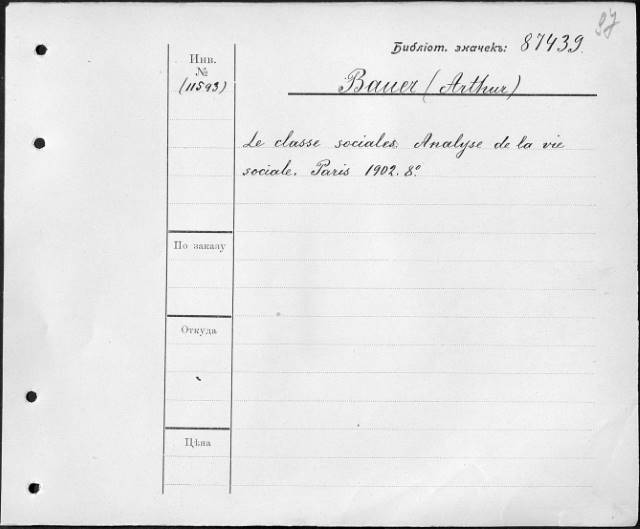 97
Библіот. значекъ: 87439
Инв.
№
(11593)
Bauer (Arthur)
Le classe sociales. Analyse de la vie
sociale. Paris 1902. 8º
По заказу
Откуда
Цѣна